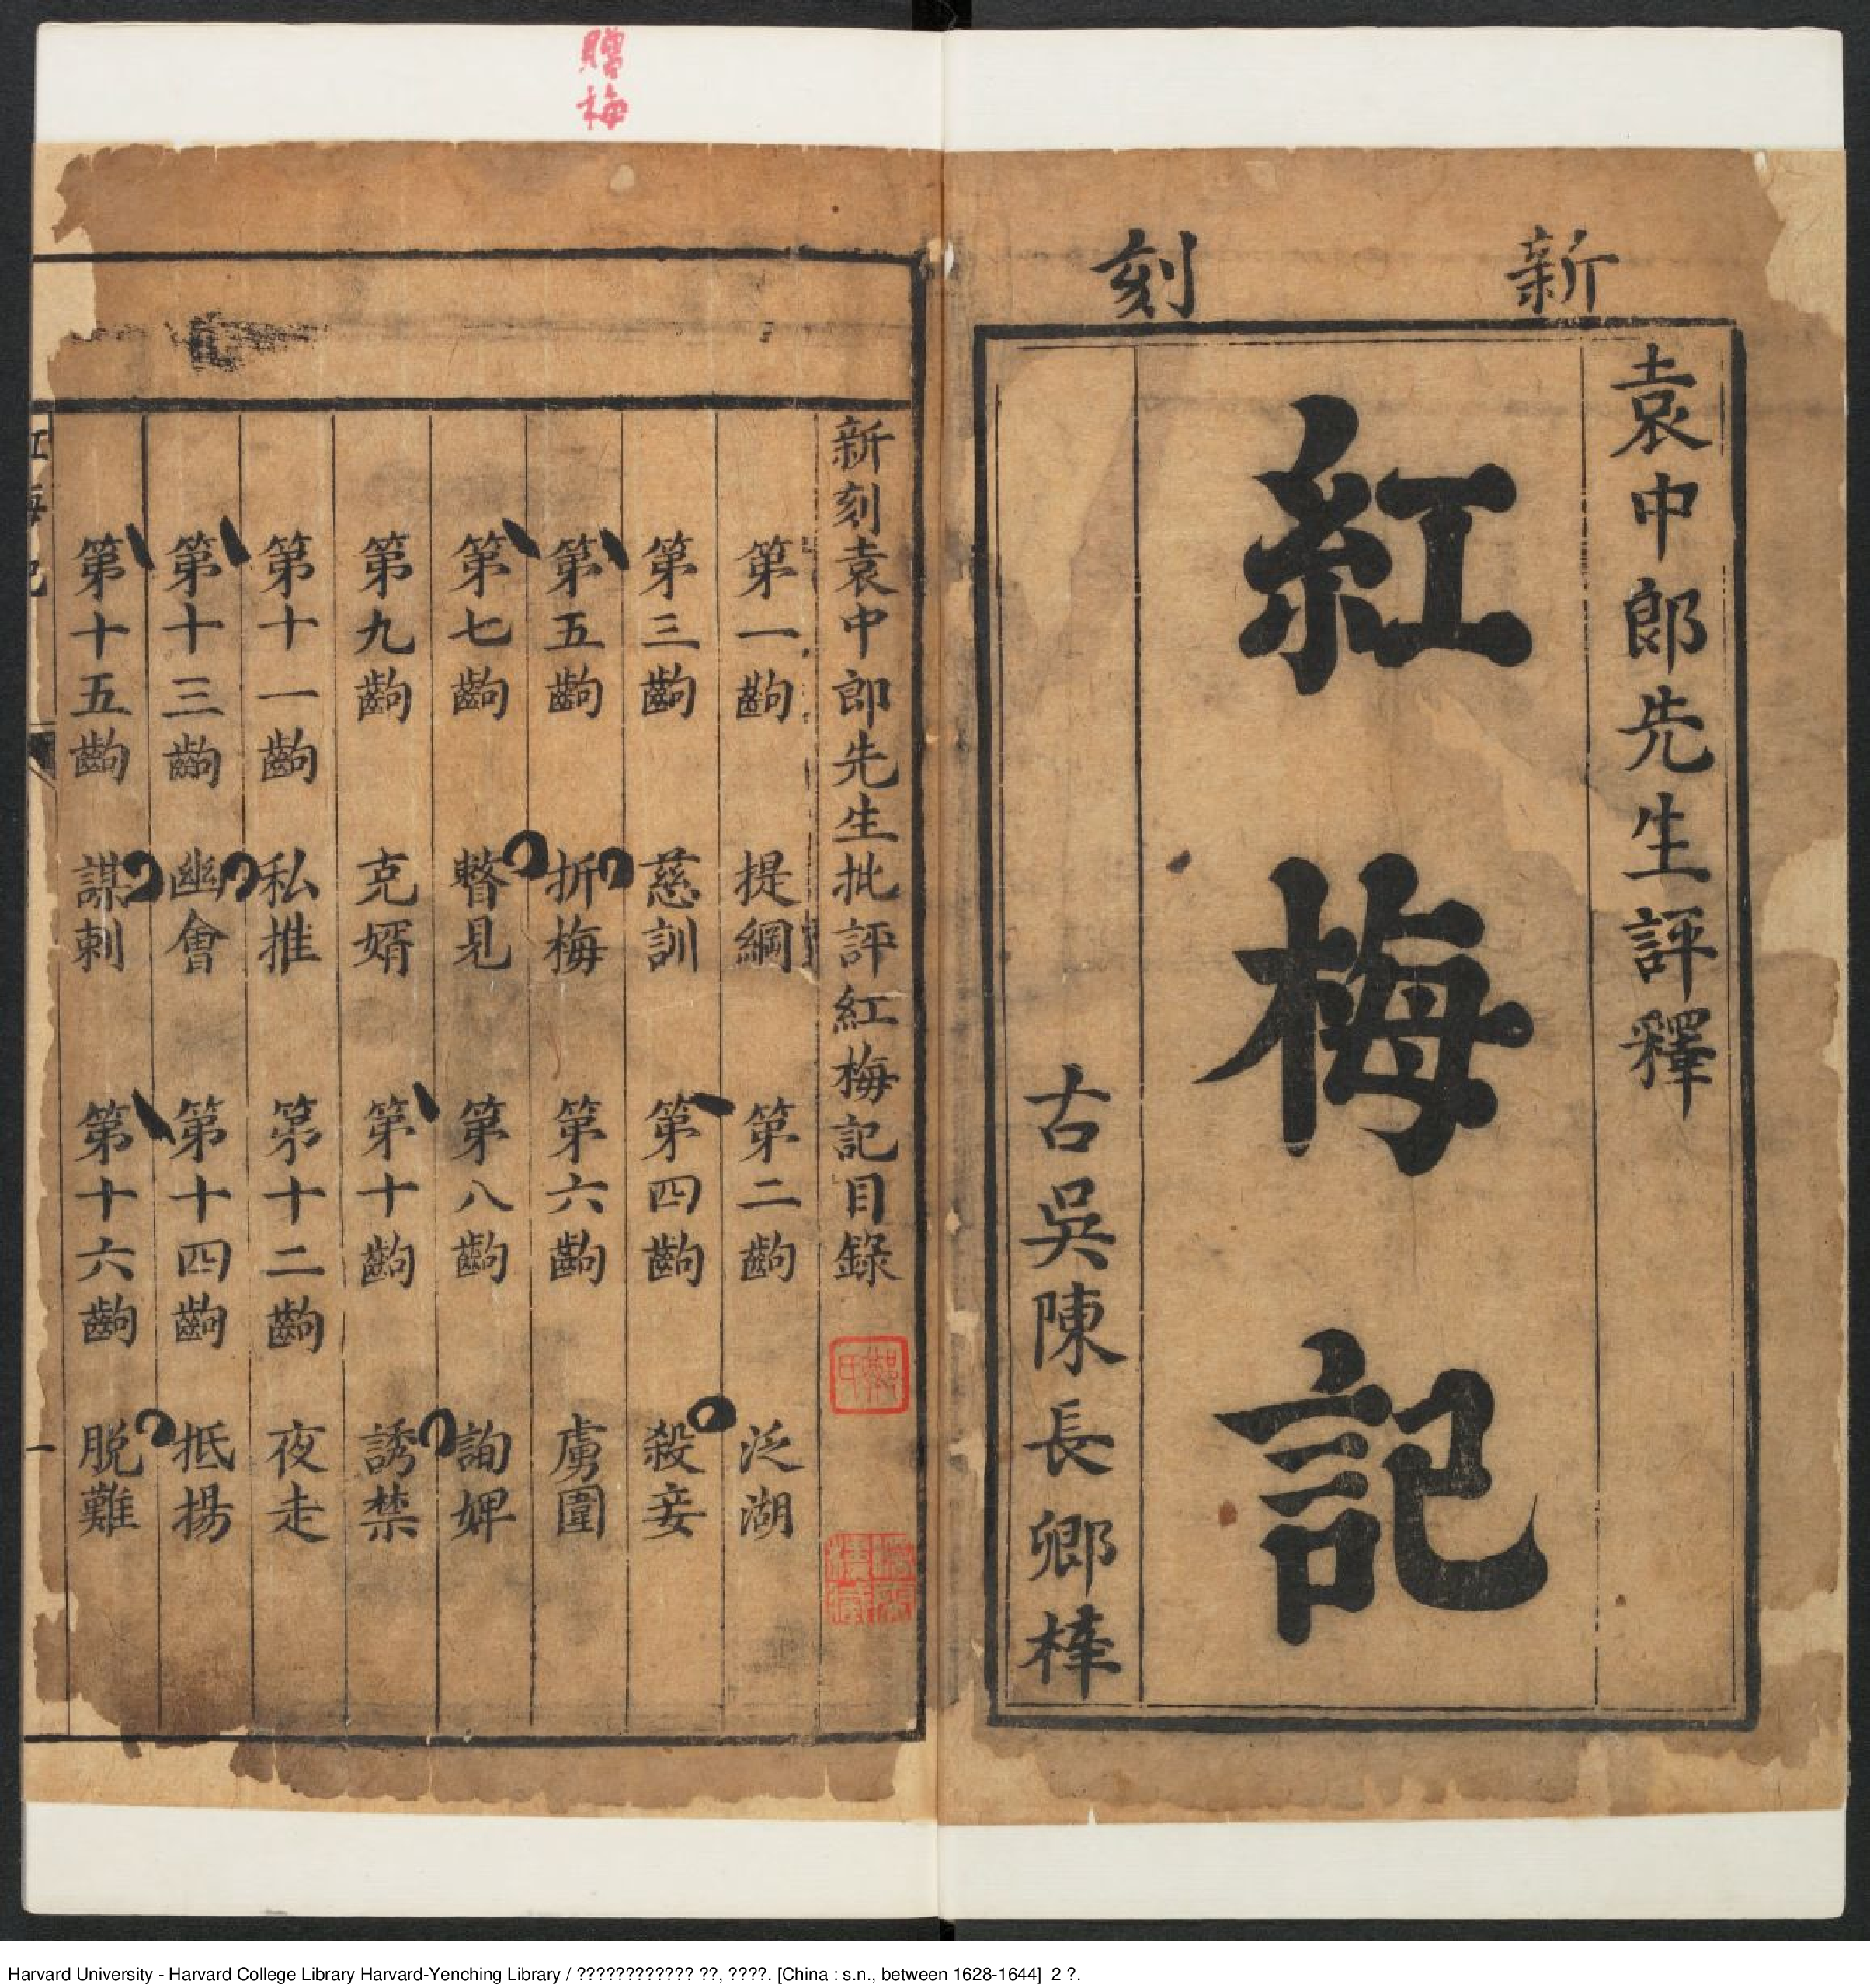 新刻
袁中郎先生評釋
紅梅記
古吳陳長卿梓
贈梅
新刻袁中郎先生批評紅梅記目錄
第一齣 提綱 第二齣 泛湖
第三齣 慈訓 第四齣 殺妾
第五齣 折梅 第六齣 虜圍
第七齣 瞥見 第八齣 詢婢
第九齣 克婿 第十齣 誘禁
第十一齣 私推 第十二齣 夜走
第十三齣 幽會 第十四齣 抵揚
第十五齣 謀刺 第十六齣 脱難
一
Harvard University - Harvard College Library Harvard-Yenching Library / ???????????? ??, ????. [China : s.n., between 1628-1644] 2 ?.